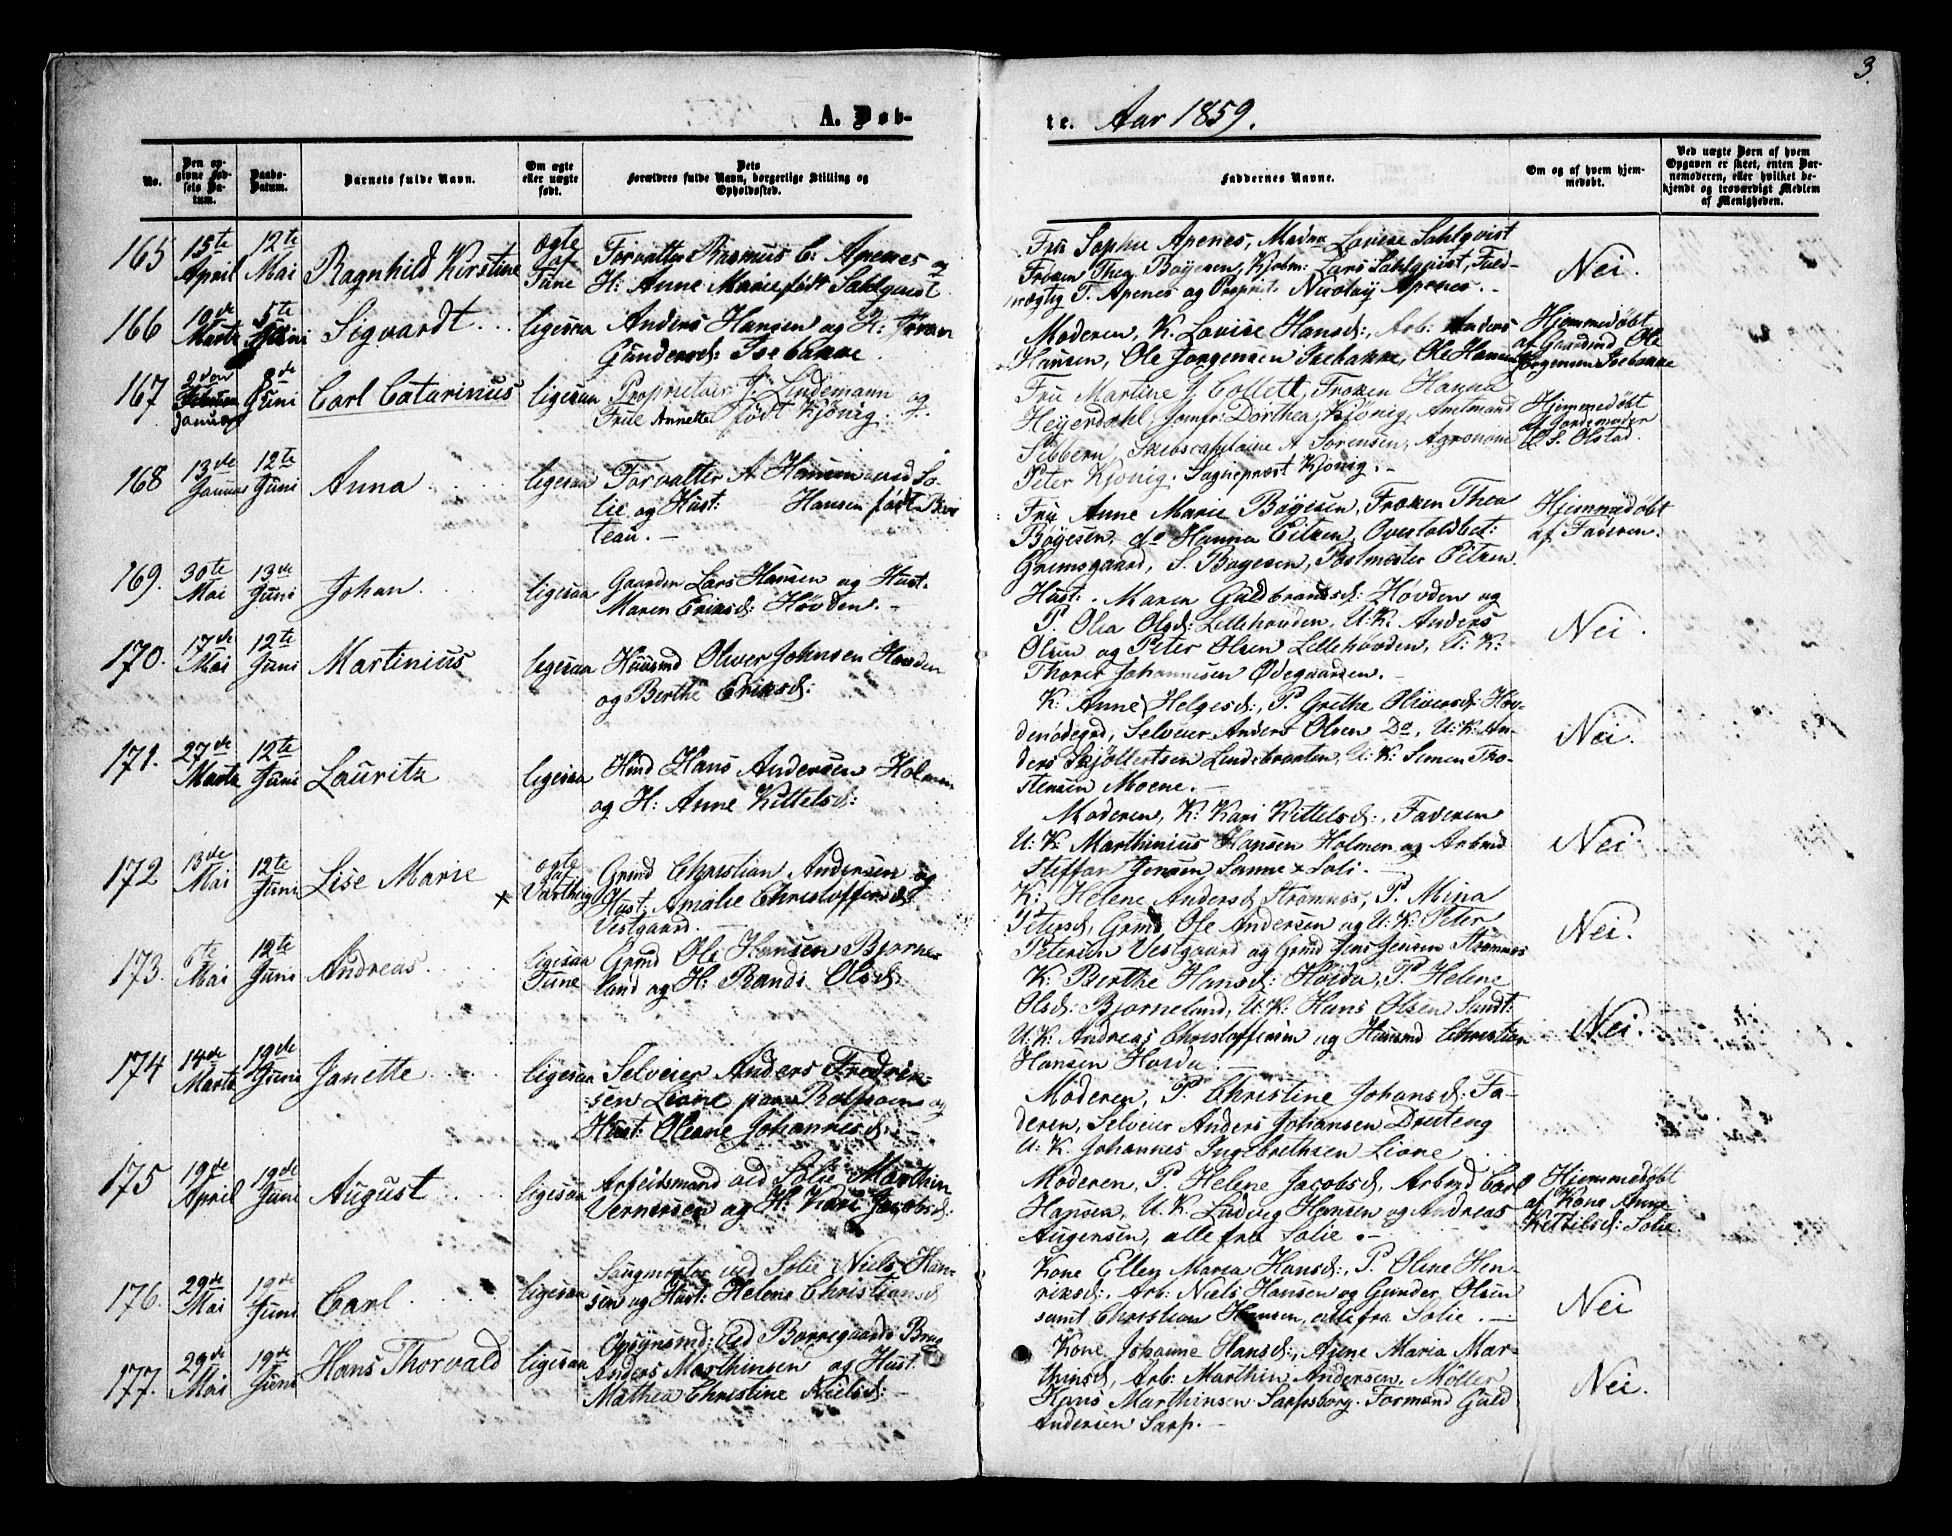 3.
A. Døb-
te. Aar 1859.
No.
Den op-
givne Fød-
sels Da-
tum.
Daabs-
Datum.
Barnets fulde Navn.
Om ægte
eller uægte
født.
Dets
Forældres fulde Navn, borgerlige Stilling og
Opholdssted.
Faddernes Navne.
Om og af hvem hjem-
medøbt.
Ved uægte Børn af hvem
Opgaven er skeet, enten Bar-
nemoderen, eller hvilket be-
kjendt og troværdigt Medlem
af Menigheden.
165
15te
April
12te
Mai
Ragnhild Kirstine
ægte
af
Tune
Forvalter Rasmus C: Apenes og
H: Anne Marie født Sahlqvist
Fru Sophie Apenes, Madm Lovise Sahlqvist
Frøken Thea Bøyesen, Kjøbm: Lars Sahlqvist, Fuld-
mægtig T. Apenes og Propriet. Nicolay Apenes. -
Nei.
166
Marts
5te
Juni
Sigvardt
ligesaa
Anders Hansen og H:
Gundersd: Isebakke
Moderen, K. Lovise Hansd:, Arb: Anders
Hansen, Ole Jørgensen Isebakke, Ole Hansen
Hjemmedøbt
af Gaardmd Ole
Jørgensen Isebakke
167
Januar
8de
Juni
Carl Catarinus
ligesaa
Proprietair J. Lindemann og
Frue Annette født Kjönig.
Fru Martine J Collett, Frøken Hanna
Heyerdahl, Jomfr: Dorthea Kjönig, Amtmand
Sibbern, Skibscapitaine A Sørensen, Agronom
Peter Kjönig. Sogneprest Kjönig. -
Hjemmedøbt
af Jordemoder
Olstad.
168
13de
Januar
12te
Juni
Anna
ligesaa
Forvalter A Hansen ved So-
lie og Hust: Hansen født
teau. -
Fru Anne Marie Bøyesen, Frøken Thea
Bøyesen, do Hanna Eitzen, Overtoldbet:
Grimsgaard, S. Bøyesen, Postmester Eitzen.
Hjemmedøbt
af Faderen.
169.
30te
Mai
13de
Juni
Johan
ligesaa
Gaardm Lars Hansen og Hust.
Maren Eriksd: Hovden. -
Hust: Maren Guldbrandsd: Hovden og
P. Olea Olsd: Lillehovden, U.K. Anders
Olsen og Peter Olsen Lillehovden, U: K:
Thorer Johannesen Ødegaarden. -
Nei.
170.
17de
Mai
12te
Juni
Martinius
ligesaa
Huusmd Oliver Johnsen Hovden
og Berthe Eriksd:
K: Anne Helgesd:, P. Grethe Oliversd: Hov-
denødegrd, Selveier Anders Olsen Do, U: K: An-
ders Skjöllertsen Lundebraaten, U: K: Simen Tho-
stensen Moene. -
Nei.
171.
27de
Marts
12te
Juni
Lauritz
ligesaa
Hmd Hans Andersen Holmen
og H: Anne Kittelsd:
Moderen, K: Kari Kittelsd:, Faderen
U: K: Marthinius Hansen Holmen og Arbmd
Steffan Jensen Sanne x Soli. -
Nei
172
13de
Mai
12te
Juni
Lise Marie
x
ægte
af
Varteig
Grmd Christian Andersen og
Hust: Amalie Christoffersd
Vestgaard.
K: Helene Andersd Strømnes, P. Mina
Petersd, Grmd Ole Andersen og U: K: Peter
Petersen Vestgaard og Grmd Jens Jensen Strømnes
Nei.
173.
6te
Mai
12te
Juni
Andreas
ligesaa
Tune
Grmd Ole Hansen Bjørne-
land og H: Randi Olsd:
K: Berthe Hansd: Horda, P. Helene
Olsd: Bjørneland, U: K: Hans Olsen Sundt:
U: K: Andreas Christoffersen og Huusmd Christian
Hansen Horda
Nei.
174
14de
Marts
19de
Juni
Janette
ligesaa
Selveier Anders Fredrik-
sen Lione
Hust: Oleane Johannesd: -
Moderen, P. Christine Johansd: Fa-
deren, Selveier Anders Johansen Dreteng
U: K. Johannes Ingebrethsen Lione
175
19de
April
19de
Juni
August
ligesaa
Arbeidsmand ved Solie Marthin
Vernersen og H: Kari Jacobsd:
Moderen, P. Helene Jacobsd, Arbmd Carl
Hansen, U. K. Ludvig Hansen og Andreas
Augensen, alle fra Solie. -
Hjemmedøbt
af Kone Anne
Kittilsd: Solie.
176.
29de
Mai
19de
Juni
Carl
ligesaa
Saugmester ved Solie Niels Han-
sen og Hust: Helene Christiansd
Kone Ellen Maria Hansd:, P. Oline Hen-
riksd:. Arb: Niels Hansen og Gunder Olsen
samt Christian Hansen, alle fra Solie. -
Nei
177.
29de
Mai
19de
Juni
Hans Thorvald
ligesaa
Opsynsmd: ved Borregaards Brug
Anders Marthinsen og Hust.
Mathea Christine Nielsd: -
Kone Johanne Hansd:, Anne Maria Mar-
thinsd, Arb: Marthin Andersen, Møller
Hans Marthinsen Sarpsborg. Formand Guld
Andersen Sarp. -
Nei.